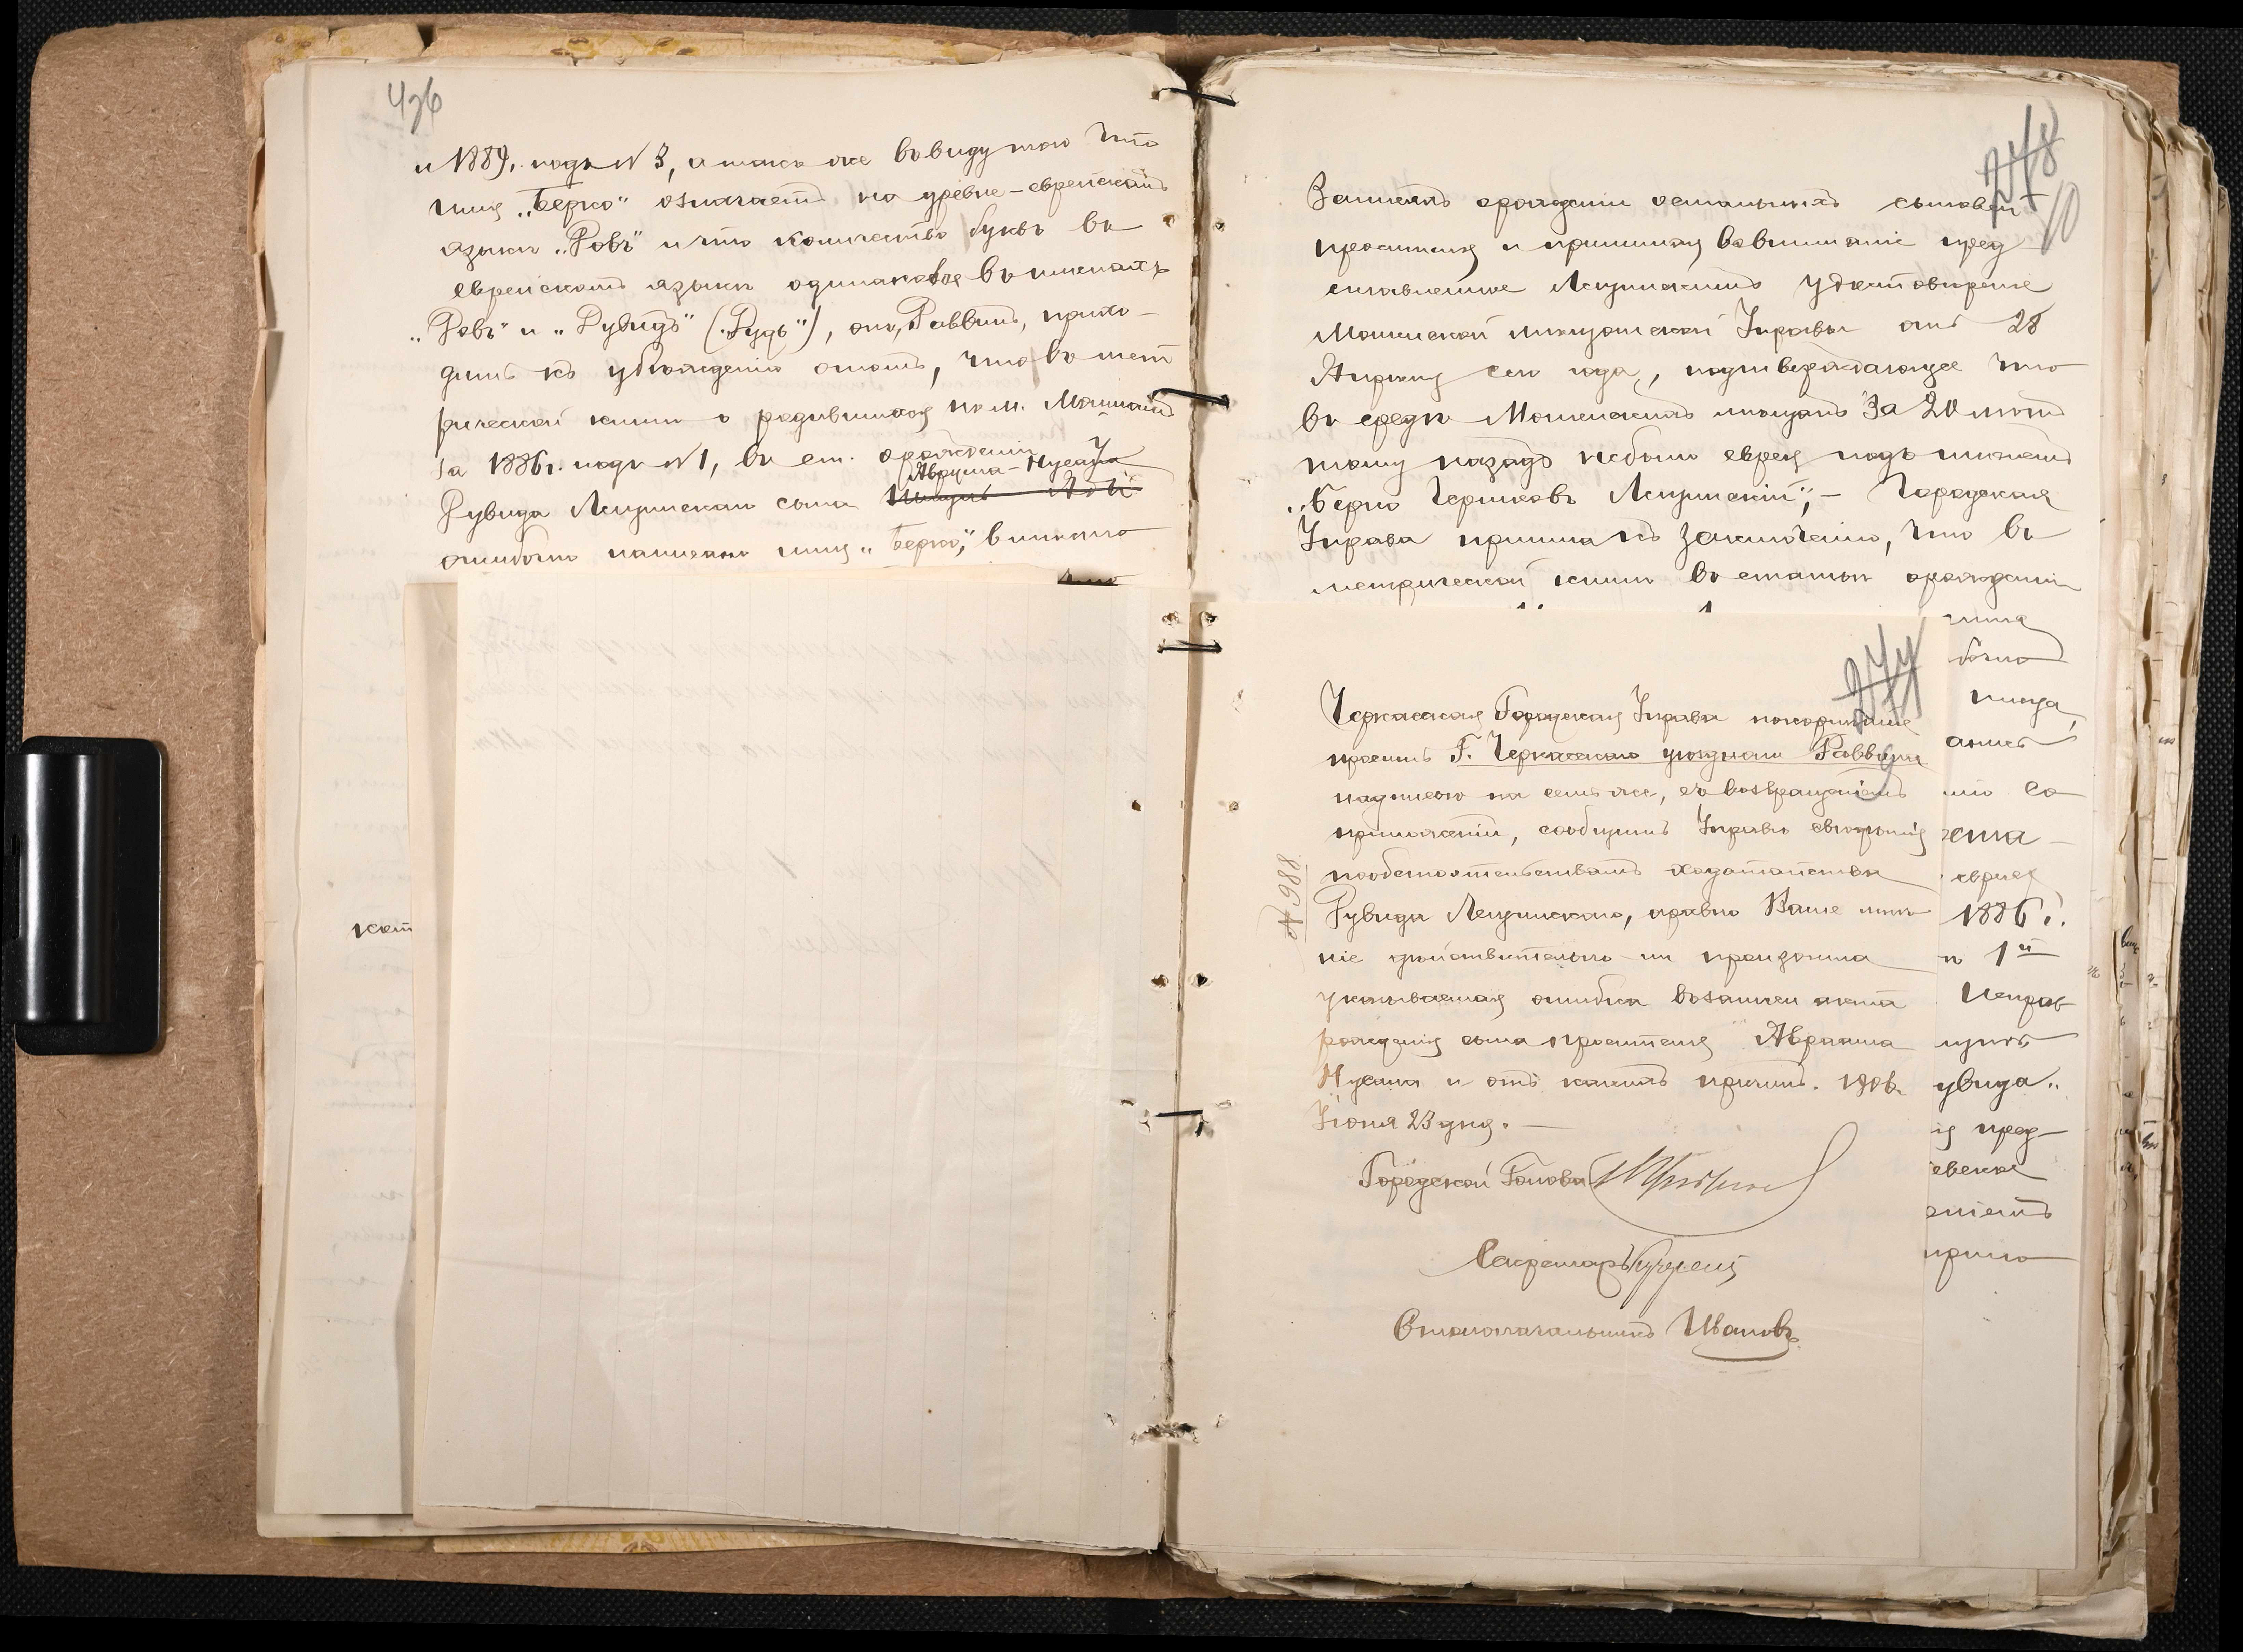 и 1889. подъ N 3, а такъ же въ виду того что
имя „Берко" означаетъ на древне-еврейскомъ
языкѣ „Ровъ" и что количество буквъ въ
еврейскомъ языкѣ одинаковое въ именахъ
„Ровъ" и „Рувидъ" („Рудъ"), онъ, Раввинъ, прихо-
дитъ къ убѣжденію о томъ, что въ мет
рической книгѣ о родившихся по м. Мошнамъ
за 1886 г. подъ N 1, въ ст. о рожденіи у
Аврума-Нусана
Рувида Лещинскаго сына
ошибочно написано имя „Берко", вмѣсто
что
Записяхъ о рожденіи остальныхъ сыновей
просителя и принимая во вниманіе пред
ставленное Лещинскимъ удостовѣреніе
Мошенской мѣщанской Управы отъ 28
Апрѣля сего года, подтверждающее что
въ средѣ Мошенскихъ мѣщанъ за 20 лѣтъ
тому назадъ не было еврея подъ именемъ
„Берко Гершковъ Лещинскій",- Городская
Управа пришла къ заключенію, что въ
метрической книгѣ въ статьѣ о рожденіи
274
Черкасская Городская Управа покорнѣйше
проситъ Г. Черкасскаго уѣзднаго Раввина
надписью на семъ же, съ возвращеніемъ
приложеній, сообщить Управѣ свѣдѣнія
по обстоятельствамъ ходатайства
Рувида Лещинскаго, и равно Ваше мнѣ
ніе дѣйствительно-ли произошла
указываемая ошибка въ записи акта
рожденія сына просителя Авраама
Нусина и отъ какихъ причинъ. 1906.
Іюня 23 дня.
N 988
Городской Голова
Секретарь
Столоначальникъ Ивановъ
имя
1886 г.
1й
Исправ
увида"
пред-